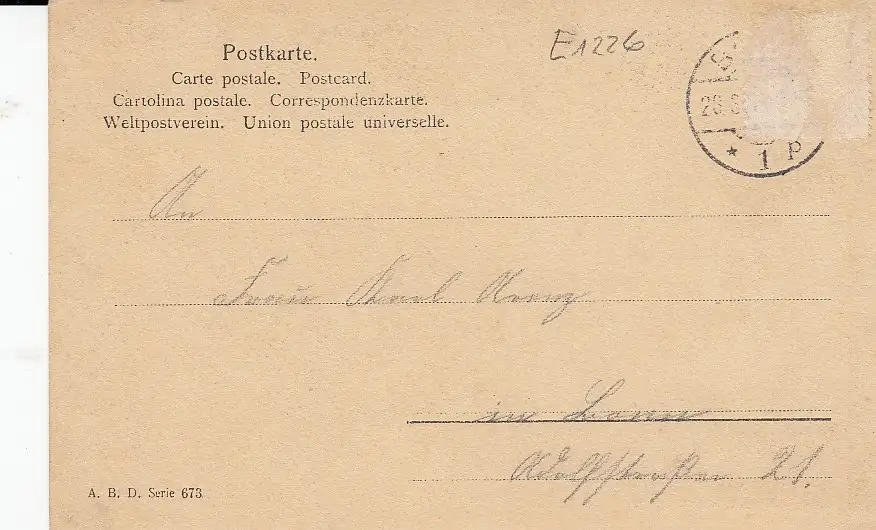 Postkarte.
Carte postale. Postcard.
Cartolina postale. Correspondenzkarte.
Weltpostverein. Union postale universelle.
E1226
* 1 p
An
Frau Karl
in Bonn
Adolfstraße 21.
A. B. D. Serie 673